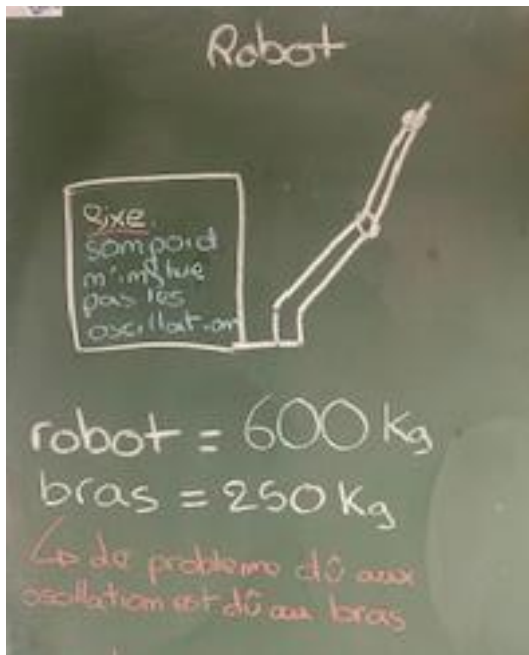 Robot
fixe
som poid
m'imflue
pas les
oscillation
robot = 600 Kg
bras = 250 Kg
↳ de probleme dû aux
oscillation est dû au bras